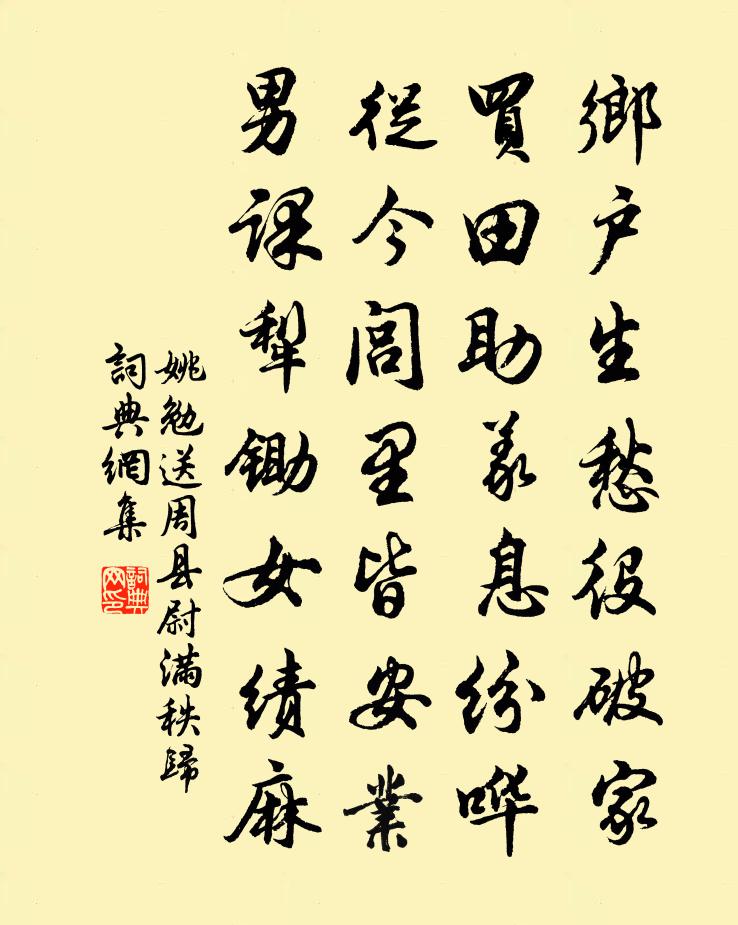 鄉户生愁役破家
買田助義息纷哗
從今閭里皆安業
男課犁鋤女績麻
姚勉送周县尉滿秩歸
詞典網集
詞典
网印